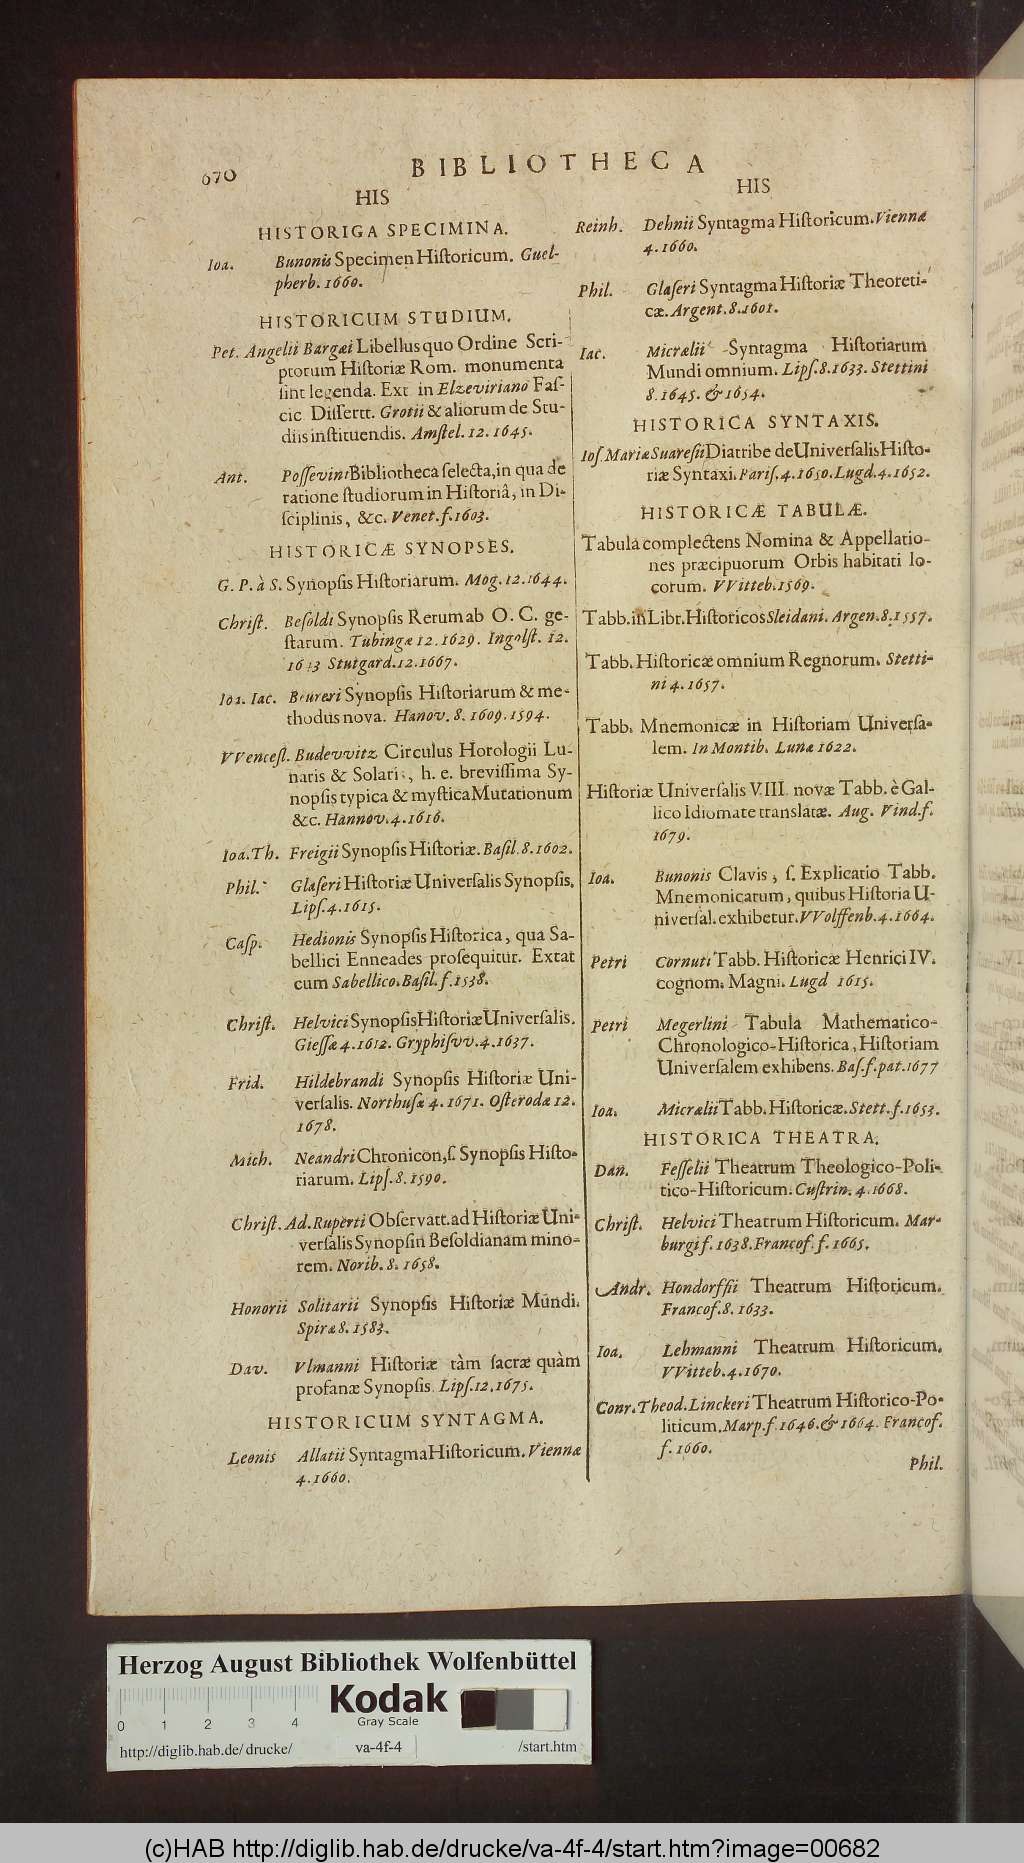 670
BIBLIOTHECA
HIS
HISTORIGA SPECIMINA.
Ioa. Bunonis Specimen Hiſtoricum. Guel-
pherb. 1660.
HISTORICUM STUDIUM.
Pet. Angelii Bargæi Libellus quo Ordine Scri-
ptorum Hiſtoriæ Rom. monumenta
ſint legenda. Ext in Elzeviriano Faſ-
cic Diſſertt. Grotii & aliorum de Stu-
diis inſtituendis. Amſtel. 12. 1645.
Ant. Poſſevini Bibliotheca ſelecta, in qua de
ratione ſtudiorum in Hiſtoriâ, in Di-
ſciplinis, &c. Venet. f. 1603.
HISTORICÆ SYNOPSES.
G. P. à S. Synopſis Hiſtoriarum. Mog. 12. 1644.
Chriſt. Beſoldi Synopſis Rerum ab O. C. ge-
ſtarum. Tubingæ 12. 1629. Ingolſt. 12.
Stutgard. 12. 1667.
Ioa. Iac. Beureri Synopſis Hiſtoriarum & me-
thodus nova. Hanov. 8. 1609. 1594.
VVenceſl. Budevvitz Circulus Horologii Lu-
naris & Solaris, h. e. breviſſima Sy-
nopſis typica & myſtica Mutationum
&c. Hannov. 4. 1616.
Ioa. Th. Freigii Synopſis Hiſtoriæ. Baſil. 8. 1602.
Phil. Glaſeri Hiſtoriæ Univerſalis Synopſis.
Lipſ. 4. 1615.
Caſp. Hedionis Synopſis Hiſtorica, qua Sa-
bellici Enneades proſequitur. Extat
cum Sabellico. Baſil. f. 1538.
Chriſt. Helvici Synopſis Hiſtoriæ Univerſalis.
Gieſſæ 4. 1612. Gryphiſvv. 4. 1637.
Frid. Hildebrandi Synopſis Hiſtoriæ Uni-
verſalis. Northuſæ 4. 1671. Oſterodæ 12.
1678.
Mich. Neandri Chronicon, ſ. Synopſis Hiſto-
riarum. Lipſ. 8. 1590.
Chriſt. Ad. Ruperti Obſervatt. ad Hiſtoriæ Uni-
verſalis Synopſin Beſoldianam mino-
rem. Norib. 8. 1658.
Honorii Solitarii Synopſis Hiſtoriæ Mundi.
Spiræ 8. 1583.
Dav. Vlmanni Hiſtoriæ tàm ſacræ quàm
profanæ Synopſis. Lipſ. 12. 1675.
HISTORICUM SYNTAGMA.
Leonis Allatii Syntagma Hiſtoricum. Viennæ
4. 1660.
HIS
Reinh. Dehnii Syntagma Hiſtoricum. Viennæ
4. 1660.
Phil. Glaſeri Syntagma Hiſtoriæ Theoreti-
cæ. Argent. 8. 1601.
Iac. Micrælii Syntagma Hiſtoriarum
Mundi omnium. Lipſ. 8. 1633. Stettini
8. 1645. & 1654.
HISTORICA SYNTAXIS.
Ioſ. Mariæ Suareſii Diatribe de Univerſalis Hiſto-
riæ Syntaxi. Pariſ. 4. 1650. Lugd. 4. 1652.
HISTORICÆ TABULÆ.
Tabula complectens Nomina & Appellatio-
nes præcipuorum Orbis habitati lo-
corum. VVitteb. 1569.
Tabb. in Libr. Hiſtoricos Sleidani. Argen. 8. 1557.
Tabb. Hiſtoricæ omnium Regnorum. Stetti-
ni 4. 1657.
Tabb. Mnemonicæ in Hiſtoriam Univerſa-
lem. In Montib. Lunæ 1622.
Hiſtoriæ Univerſalis VIII. novæ Tabb. è Gal-
lico Idiomate translatæ. Aug. Vind. f.
1679.
Ioa. Bunonis Clavis, ſ. Explicatio Tabb.
Mnemonicarum, quibus Hiſtoria U-
niverſal. exhibetur. VVolffenb. 4. 1664.
Petri Cornuti Tabb. Hiſtoricæ Henrici IV.
cognom. Magni. Lugd 1615.
Petri Megerlini Tabula Mathematico-
Chronologico-Hiſtorica, Hiſtoriam
Univerſalem exhibens. Baſ. f. pat. 1677
Ioa. Micrælii Tabb. Hiſtoricæ. Stett. f. 1653.
HISTORICA THEATRA.
Dan. Feſſelii Theatrum Theologico-Poli-
tico-Hiſtoricum. Cuſtrin. 4. 1668.
Chriſt. Helvici Theatrum Hiſtoricum. Mar-
burgi f. 1638. Francof. f. 1665.
Andr. Hondorffii Theatrum Hiſtoricum.
Francof. 8. 1633.
Ioa. Lehmanni Theatrum Hiſtoricum.
VVitteb. 4. 1670.
Conr. Theod. Linckeri Theatrum Hiſtorico-Po-
liticum. Marp. f. 1646. & 1664. Francof.
f. 1660.
Phil.
Herzog August Bibliothek Wolfenbüttel
Kodak
Gray Scale
0 1 2 3 4
http://diglib.hab.de/drucke/ va-4f-4 /start.htm
(c)HAB http://diglib.hab.de/drucke/va-4f-4/start.htm?image=00682